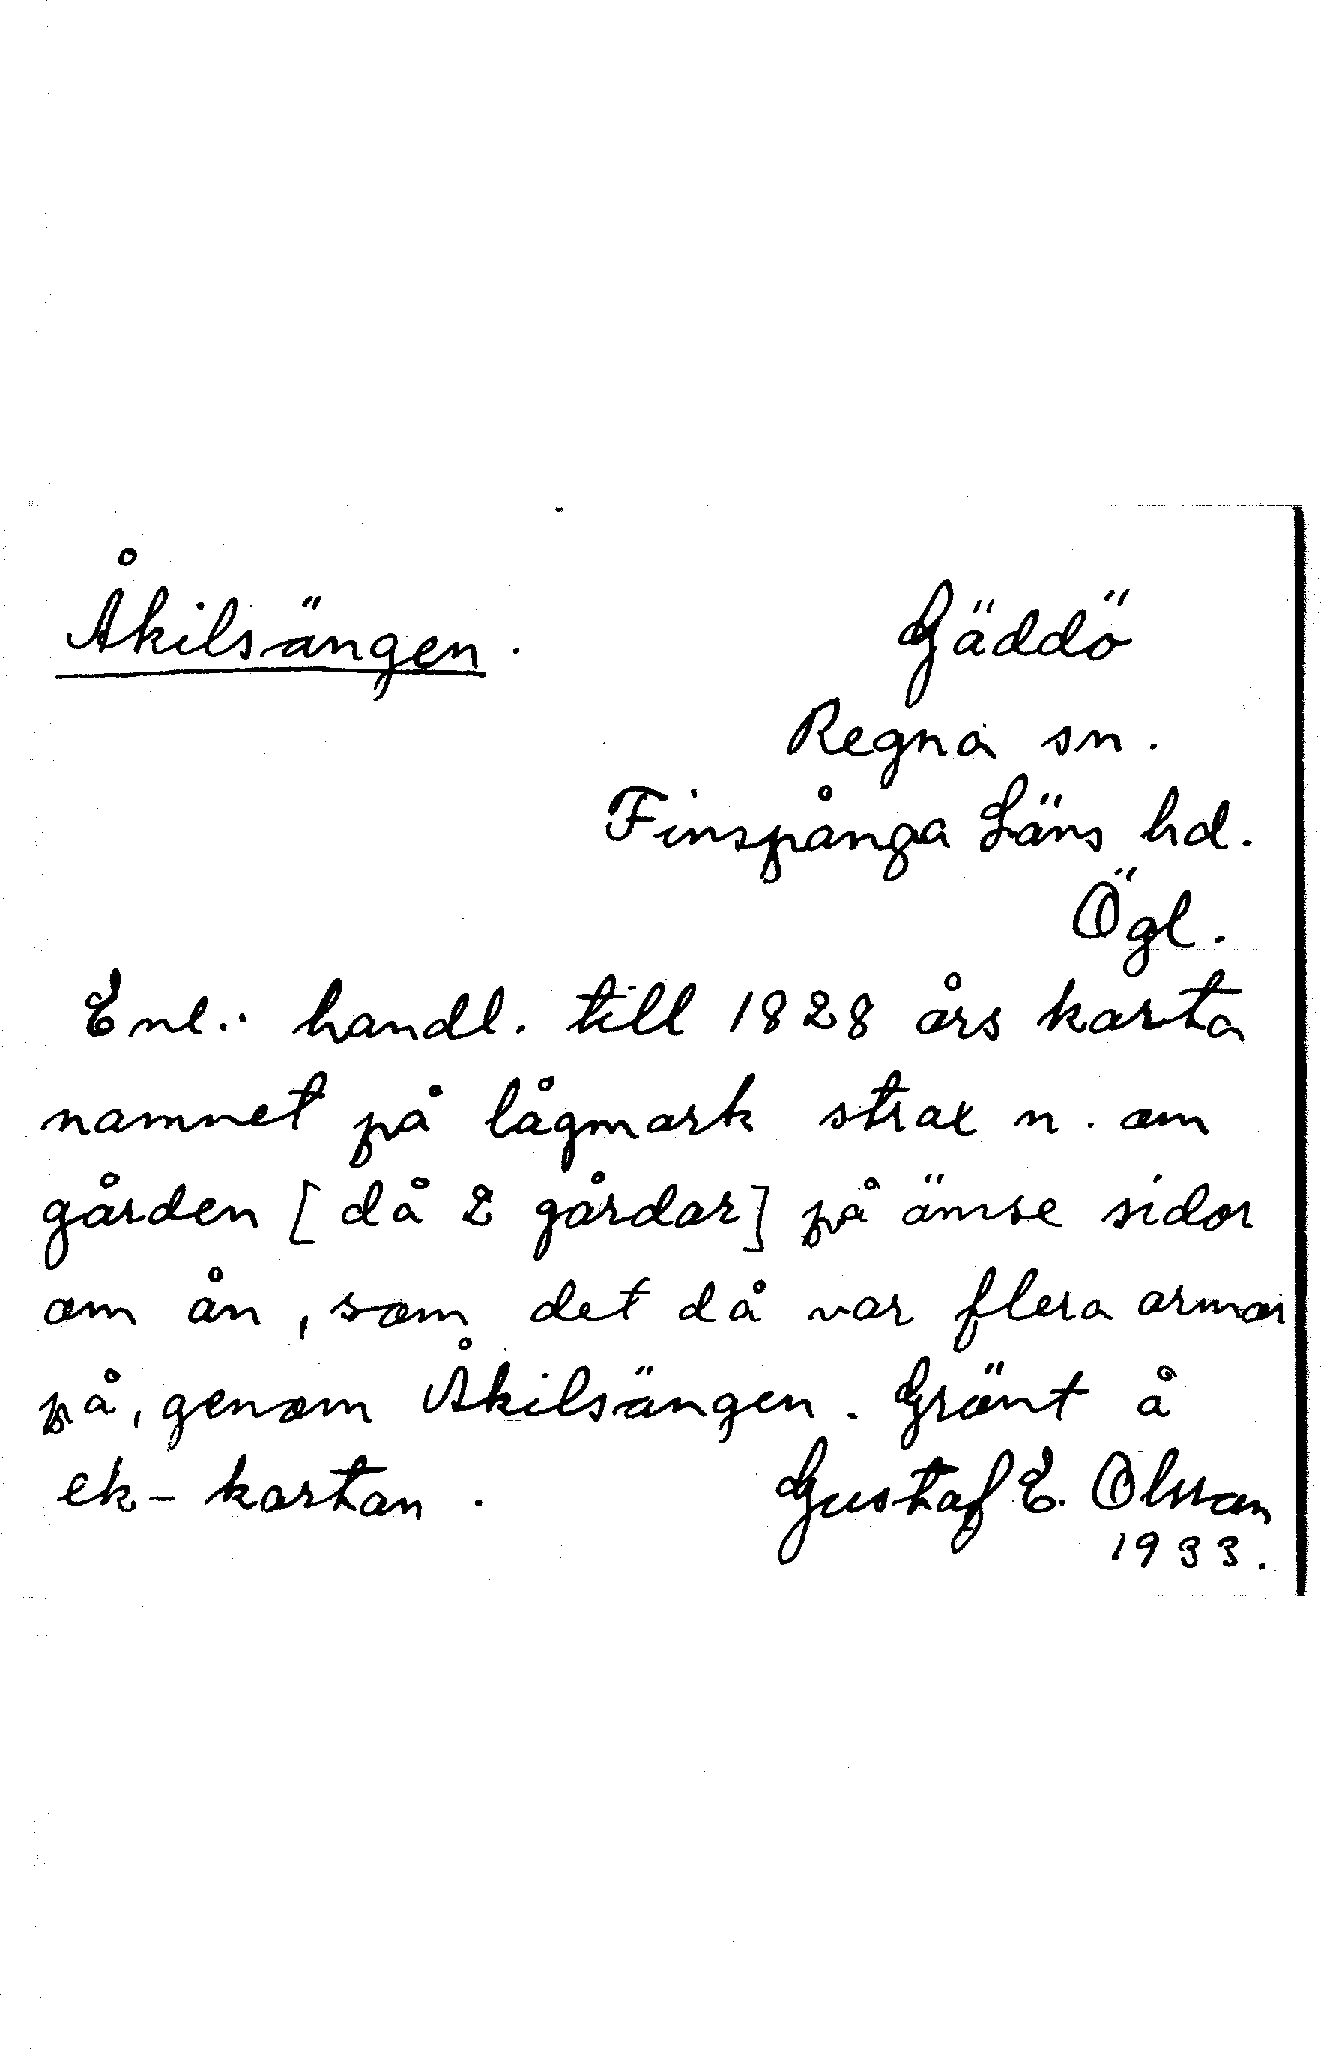 Åkilsängen. Gäddö
Regna sn.
Finspånga Läns hd.
Ögl.
Enl. handl. till 1828 års karta
namnet på lågmark strax n. om
gården [då 2 gårdar] på ömse sidor
om ån, som det då var flera armar
på, genom Åkilsängen. Grönt å
ek-kartan. Gustaf E. Olsson
1933.